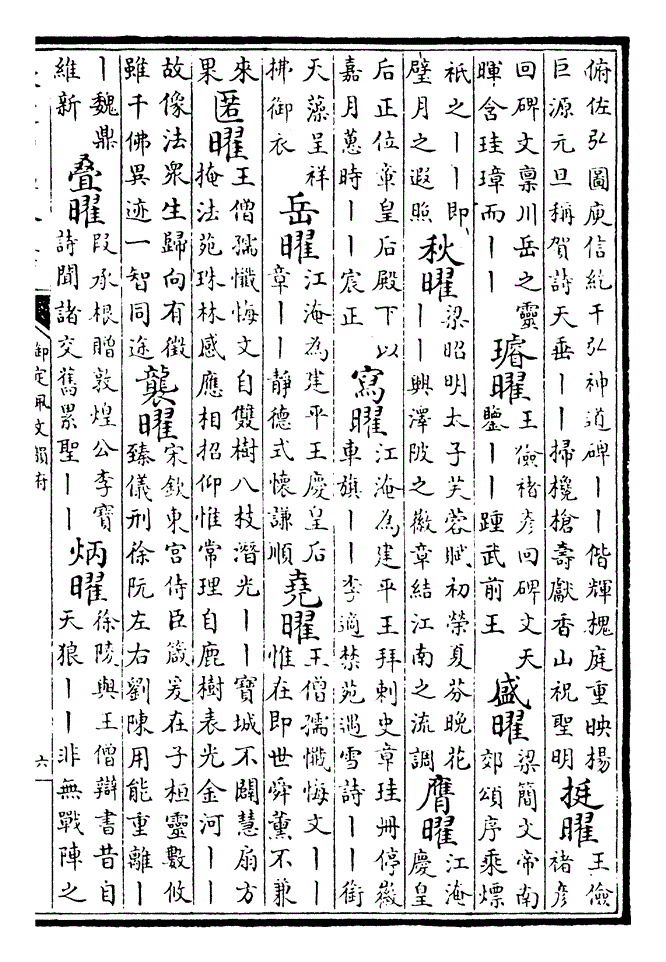 俯佐弘圖庾信紇干弘神道碑丨丨偕輝槐庭重映楊
巨源元旦稱賀詩天垂丨丨掃欃槍壽獻香山祝聖明
挺曜
王儉
褚彥
回碑文禀川岳之靈
暉含珪璋而丨丨
璿曜
王儉褚彥回碑文天
鑒丨丨踵武前王
盛曜
梁簡文帝南
郊頌序乘煙
祇之丨丨即
璧月之遐照
秋曜
梁昭明太子芙蓉賦初榮夏芬晚花
丨丨興澤陂之徽章結江南之流調
膺曜
江淹
慶皇
后正位章皇后殿下以
嘉月蕙時丨丨宸正
寫曜
江淹為建平王拜刺史章珪冊停徽
車旗丨丨李適禁苑遇雪詩丨丨銜
天藻呈祥
拂御衣
岳曜
江淹為建平王慶皇后
章丨丨靜德式懷謙順
堯曜
王僧孺懺悔文丨丨
惟在即世舜薰不兼
來
果
匿曜
王僧孺懺悔文自雙樹八枝潛光丨丨寶城不闢慧扇方
掩法苑珠林感應相招仰惟常理自鹿樹表光金河丨丨
故像法衆生歸向有徵
雖千佛異迹一智同途
襲曜
宋欽東宮侍臣箴爰在子桓靈數攸
臻儀刑徐阮左右劉陳用能重離丨
丨魏鼎
維新
叠曜
段承根贈敦煌公李寶
詩聞諸交舊累聖丨丨
炳曜
徐陵與王僧辯書昔自
天狼丨丨非無戰陣之
御定佩文韻府
六